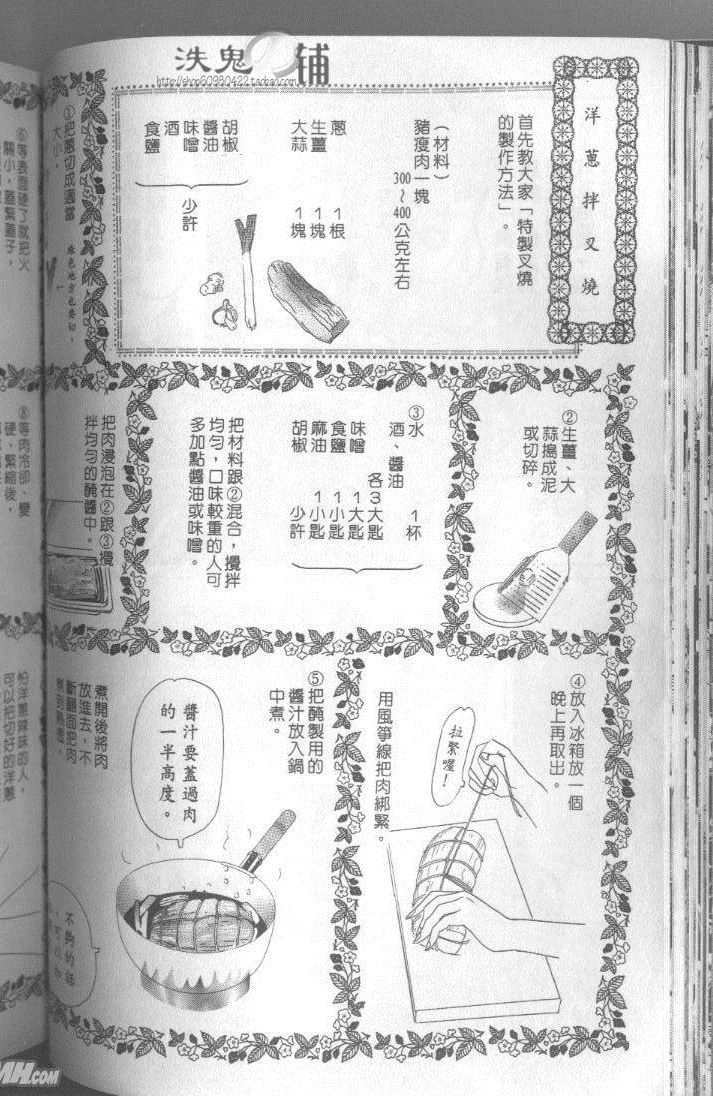 洗鬼
铺
http://shop60980422.taobao.com
洋蔥拌叉燒
首先教大家「特製叉燒
的製作方法」。
（材料）
豬瘦肉一塊
300～400公克左右
蔥 1根
生薑 1塊
大蒜 1塊
胡椒
醬油
味噌
酒
食鹽
少許
①把蔥切成適當
大小，
綠色地方也要切。
②生薑、大
蒜搗成泥
或切碎。
③水 1杯
酒、醬油 各3大匙
味噌 1大匙
食鹽 1小匙
麻油 1小匙
胡椒 少許
把材料跟②混合，攪拌
均勻，口味較重的人可
多加點醬油或味噌。
把肉浸泡在②跟③攪
拌均勻的醃醬中。
④放入冰箱放一個
晚上再取出。
用風箏線把肉綁緊。
拉緊喔！
⑤把醃製用的
醬汁放入鍋
中煮。
醬汁要蓋過肉
的一半高度。
煮開後將肉
放進去，不
斷翻面把肉
煮到熟透。
不夠的話
⑥等表面硬了就把火
關小，蓋緊蓋子，
⑧等肉冷卻、變
硬、緊縮後，
怕洋蔥辣味的人，
可以把切好的洋蔥
MH.COM